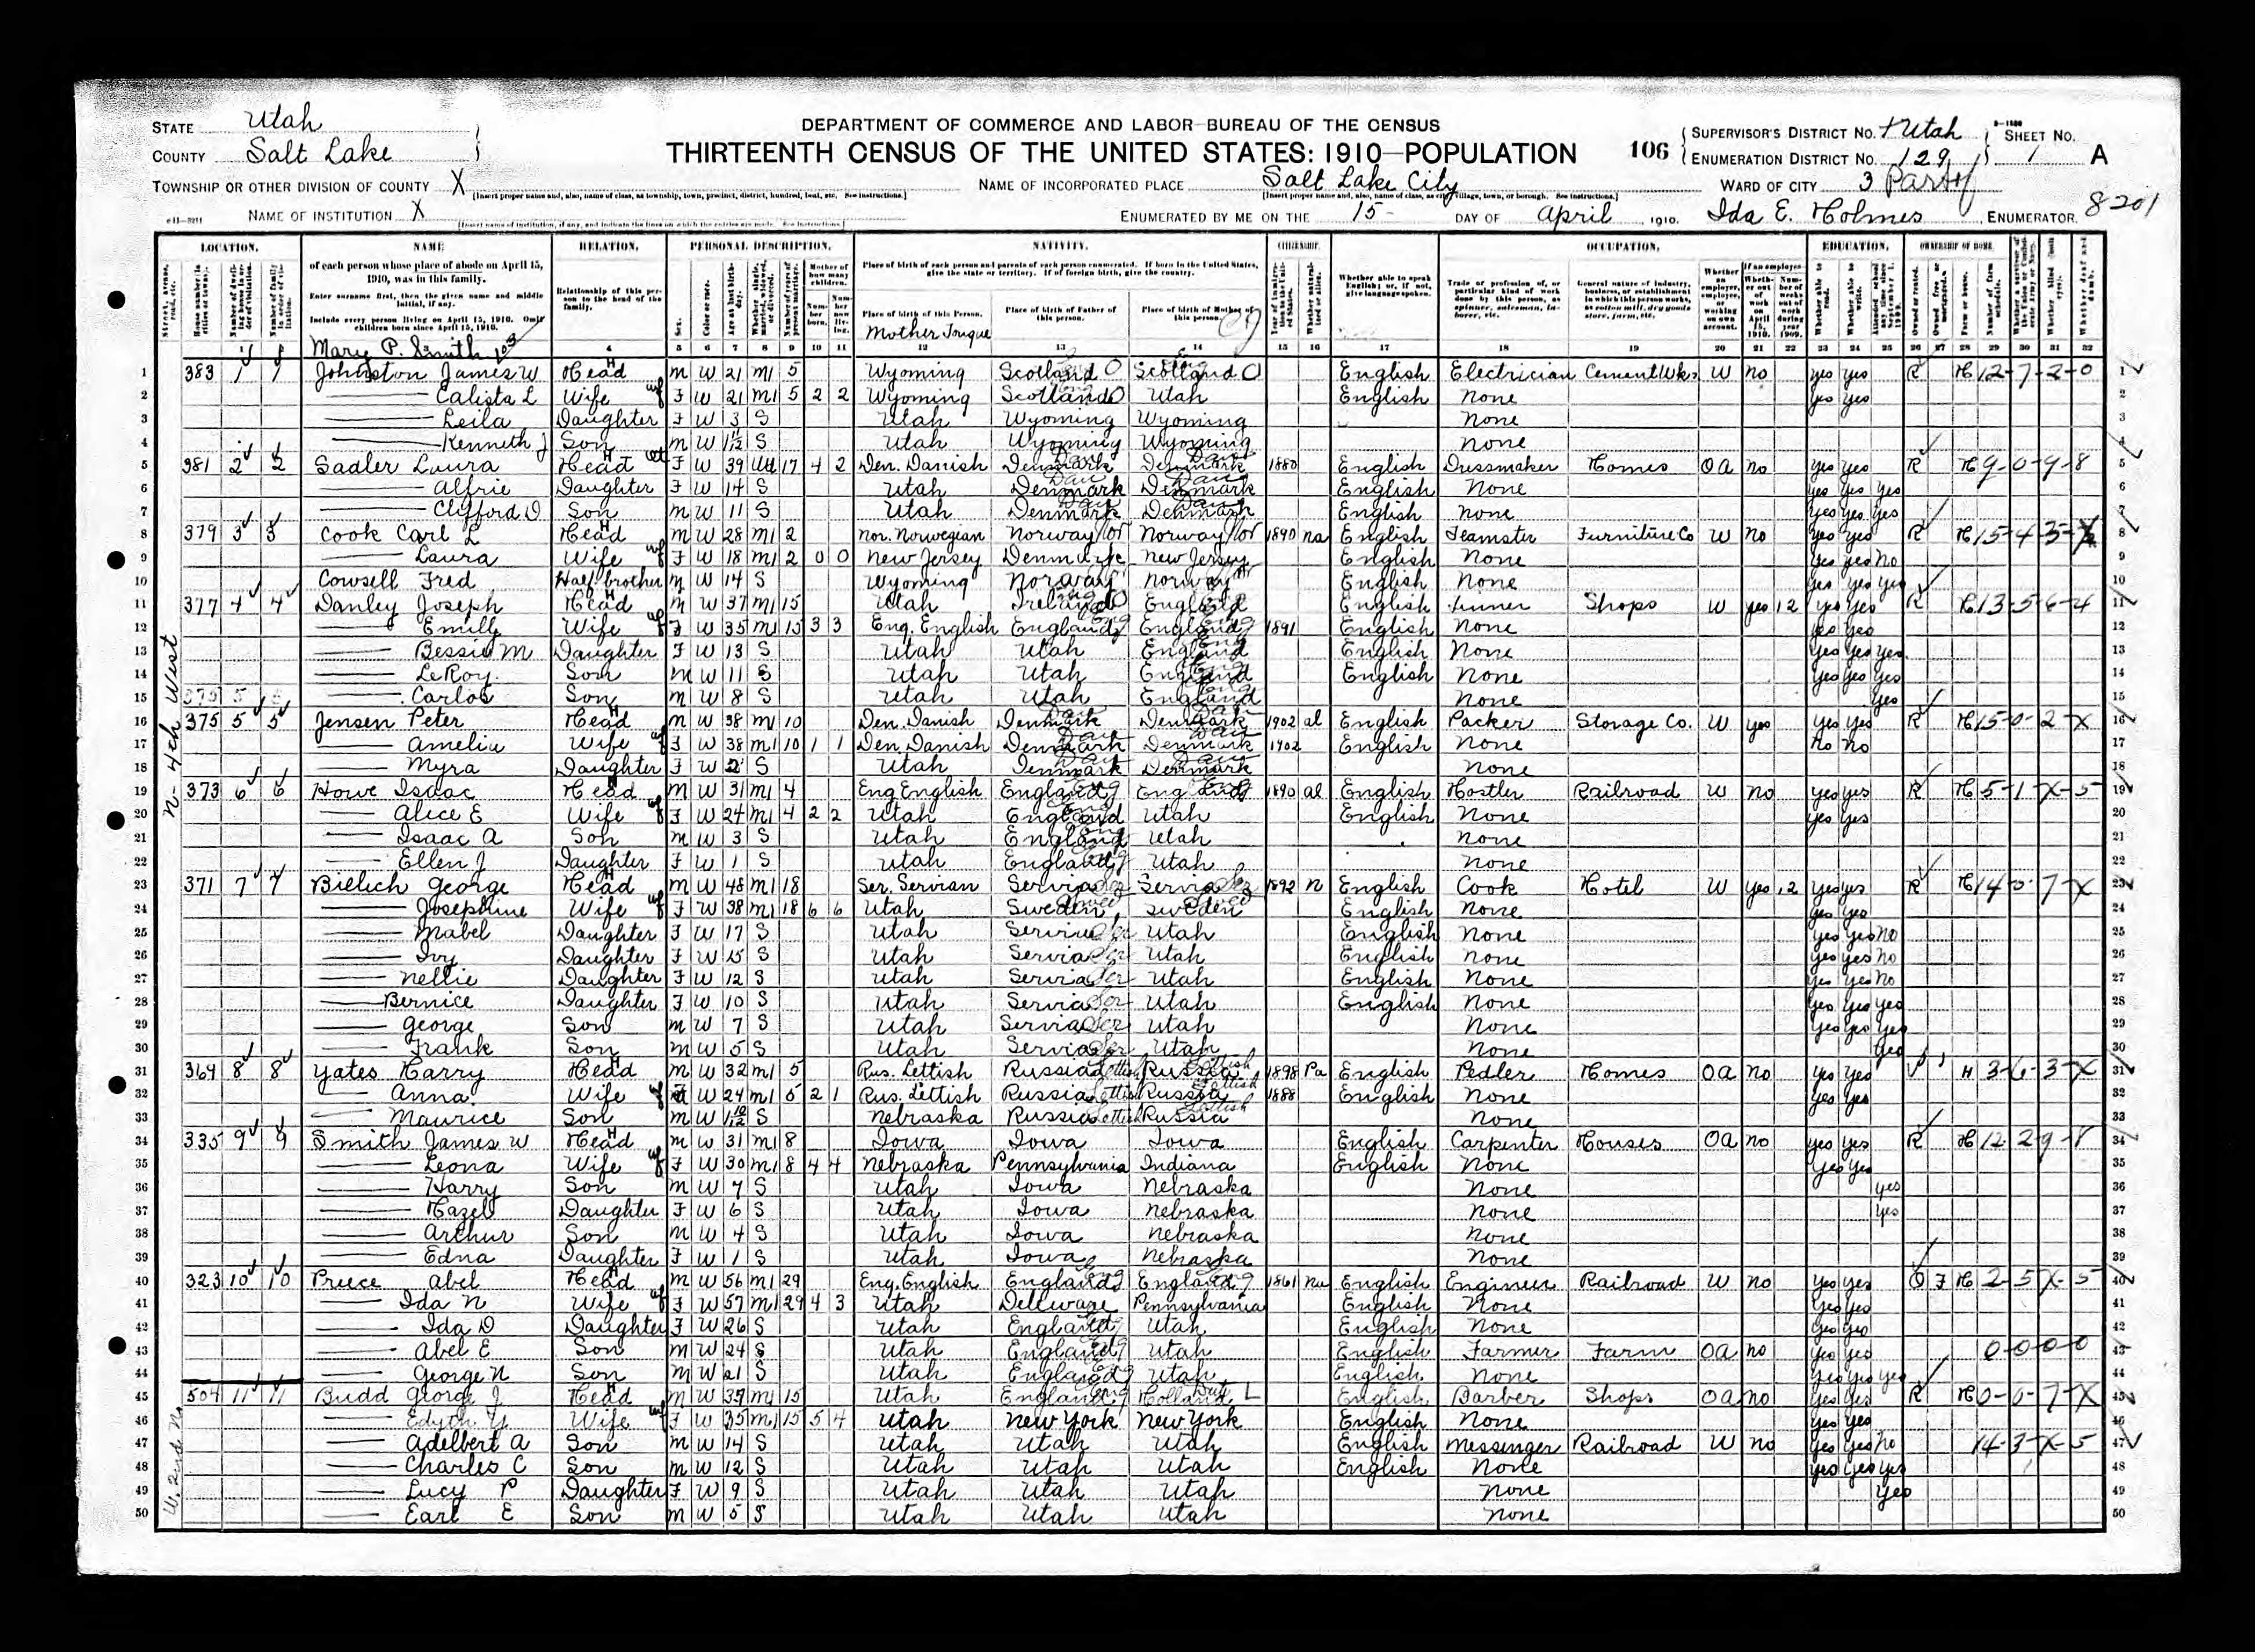 STATE Utah
COUNTY Salt Lake
DEPARTMENT OF COMMERCE AND LABOR—BUREAU OF THE CENSUS
THIRTEENTH CENSUS OF THE UNITED STATES: 1910—POPULATION
106
SUPERVISOR'S DISTRICT No. Utah
ENUMERATION DISTRICT No. 129
SHEET No. 1 A
TOWNSHIP OR OTHER DIVISION OF COUNTY X
NAME OF INCORPORATED PLACE Salt Lake City
WARD OF CITY 3 Part of
NAME OF INSTITUTION X
ENUMERATED BY ME ON THE 15 DAY OF April, 1910. Ida E. Holmes, ENUMERATOR. 8201
LOCATION. NAME RELATION. PERSONAL DESCRIPTION. NATIVITY. CITIZENSHIP. OCCUPATION. EDUCATION. OWNERSHIP OF HOME.
of each person whose place of abode on April 15, 1910, was in this family.
Enter surname first, then the given name and middle initial, if any.
Include every person living on April 15, 1910. Omit children born since April 15, 1910.
Relationship of this person to the head of the family.
Place of birth of each person and parents of each person enumerated. If born in the United States, give the state or territory. If of foreign birth, give the country.
Place of birth of this Person. Place of birth of Father of this person. Place of birth of Mother of this person.
Mother Tongue
Whether able to speak English; or, if not, give language spoken.
Mary P. Smith
N- 4th West
1 383 1 1 Johnston James W Head m W 21 m1 5 Wyoming Scotland Scotland English Electrician Cement Wks W no yes yes R H 12-7-2-0 1
2 Calista L Wife F W 21 m1 5 2 2 Wyoming Scotland Utah English None yes yes 2
3 Leila Daughter F W 3 S Utah Wyoming Wyoming None 3
4 Kenneth J Son m W 1 S Utah Wyoming Wyoming None 4
5 381 2 2 Sadler Laura Head F W 39 Wd 17 4 2 Den. Danish Denmark Denmark 1880 English Dressmaker Homes OA no yes yes R H 9-0-9-8 5
6 Alfrie Daughter F W 14 S Utah Denmark Denmark English None yes yes yes 6
7 Clifford O Son m W 11 S Utah Denmark Denmark English None yes yes yes 7
8 379 3 3 Cook Carl L Head m W 28 m1 2 Nor. Norwegian Norway Norway 1890 na English Teamster Furniture Co W no yes yes R H 15-4-3-X 8
9 Laura Wife F W 18 m1 2 0 0 New Jersey Denmark New Jersey English None yes yes no 9
10 Cowsell Fred Half brother m W 14 S Wyoming Norway Norway English None yes yes yes 10
11 377 4 4 Danley Joseph Head m W 37 m1 15 Utah Ireland England English Tinner Shops W yes 12 yes yes R H 13-5-6-4 11
12 Emily Wife F W 35 m1 15 3 3 Eng. English England England 1891 English None yes yes 12
13 Bessie M Daughter F W 13 S Utah Utah England English None yes yes yes 13
14 LeRoy Son m W 11 S Utah Utah England English None yes yes yes 14
15 Carlos Son m W 8 S Utah Utah England None yes 15
16 375 5 5 Jensen Peter Head m W 38 m1 10 Den. Danish Denmark Denmark 1902 al English Packer Storage Co. W yes yes yes R H 15-0-2-X 16
17 Amelia Wife F W 38 m1 10 1 1 Den. Danish Denmark Denmark 1902 English None no no 17
18 Myra Daughter F W 2 S Utah Denmark Denmark None 18
19 373 6 6 Howe Isaac Head m W 31 m1 4 Eng English England England 1890 al English Hostler Railroad W no yes yes R H 5-1-X-5 19
20 Alice E Wife F W 24 m1 4 2 2 Utah England Utah English None yes yes 20
21 Isaac A Son m W 3 S Utah England Utah None 21
22 Ellen J Daughter F W 1 S Utah England Utah None 22
23 371 7 7 Bielich George Head m W 48 m1 18 Ser. Servian Servia Servia 1892 n English Cook Hotel W yes 12 yes yes R H 14-0-7-X 23
24 Josephine Wife F W 38 m1 18 6 6 Utah Sweden Sweden English None yes yes 24
25 Mabel Daughter F W 17 S Utah Servia Utah English None yes yes no 25
26 Ivy Daughter F W 15 S Utah Servia Utah English None yes yes no 26
27 Nellie Daughter F W 12 S Utah Servia Utah English None yes yes no 27
28 Bernice Daughter F W 10 S Utah Servia Utah English None yes yes yes 28
29 George Son m W 7 S Utah Servia Utah None yes yes yes 29
30 Frank Son m W 5 S Utah Servia Utah None yes 30
31 369 8 8 Yates Harry Head m W 32 m1 5 Rus. Lettish Russia Russia 1898 Pa English Pedler Homes OA no yes yes H 3-6-3-X 31
32 Anna Wife F W 24 m1 5 2 1 Rus. Lettish Russia Russia 1888 English None yes yes 32
33 Maurice Son m W 1 10/12 S Nebraska Russia Russia None 33
34 335 9 9 Smith James W Head m W 31 m1 8 Iowa Iowa Iowa English Carpenter Houses OA no yes yes R H 12 2-9-8 34
35 Leona Wife F W 30 m1 8 4 4 Nebraska Pennsylvania Indiana English None yes yes 35
36 Harry Son m W 7 S Utah Iowa Nebraska None yes 36
37 Hazel Daughter F W 6 S Utah Iowa Nebraska None yes 37
38 Arthur Son m W 4 S Utah Iowa Nebraska None 38
39 Edna Daughter F W 1 S Utah Iowa Nebraska None 39
40 323 10 10 Preece Abel Head m W 56 m1 29 Eng. English England England 1861 Na English Engineer Railroad W no yes yes O F H 2-5-X-5 40
41 Ida N Wife F W 57 m1 29 4 3 Utah Delleware Pennsylvania English None yes yes 41
42 Ida D Daughter F W 26 S Utah England Utah English None yes yes 42
43 Abel E Son m W 24 S Utah England Utah English Farmer Farm OA no yes yes 0-0-0-0 43
44 George N Son m W 21 S Utah England Utah English None yes yes yes 44
W. 2nd No.
45 504 11 11 Budd George J Head m W 39 m1 15 Utah England Holland English Barber Shops OA no yes yes R H 0-0-7-X 45
46 Edyth Y Wife F W 35 m1 15 5 4 Utah New York New York English None yes yes 46
47 Adelbert A Son m W 14 S Utah Utah Utah English Messenger Railroad W no yes yes no 14-3-X-5 47
48 Charles C Son m W 12 S Utah Utah Utah English None yes yes yes 48
49 Lucy P Daughter F W 9 S Utah Utah Utah None yes 49
50 Earl E Son m W 5 S Utah Utah Utah None 50